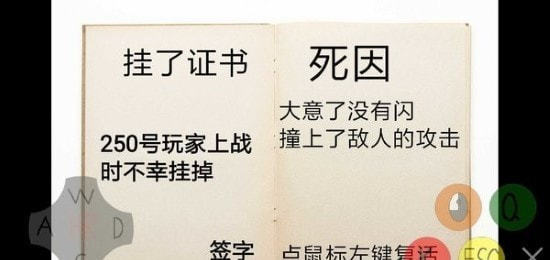 挂了证书
250号玩家上战
时不幸挂掉
签字
死因
大意了没有闪
撞上了敌人的攻击
点鼠标左键复活
W
A
D
Q
ESC